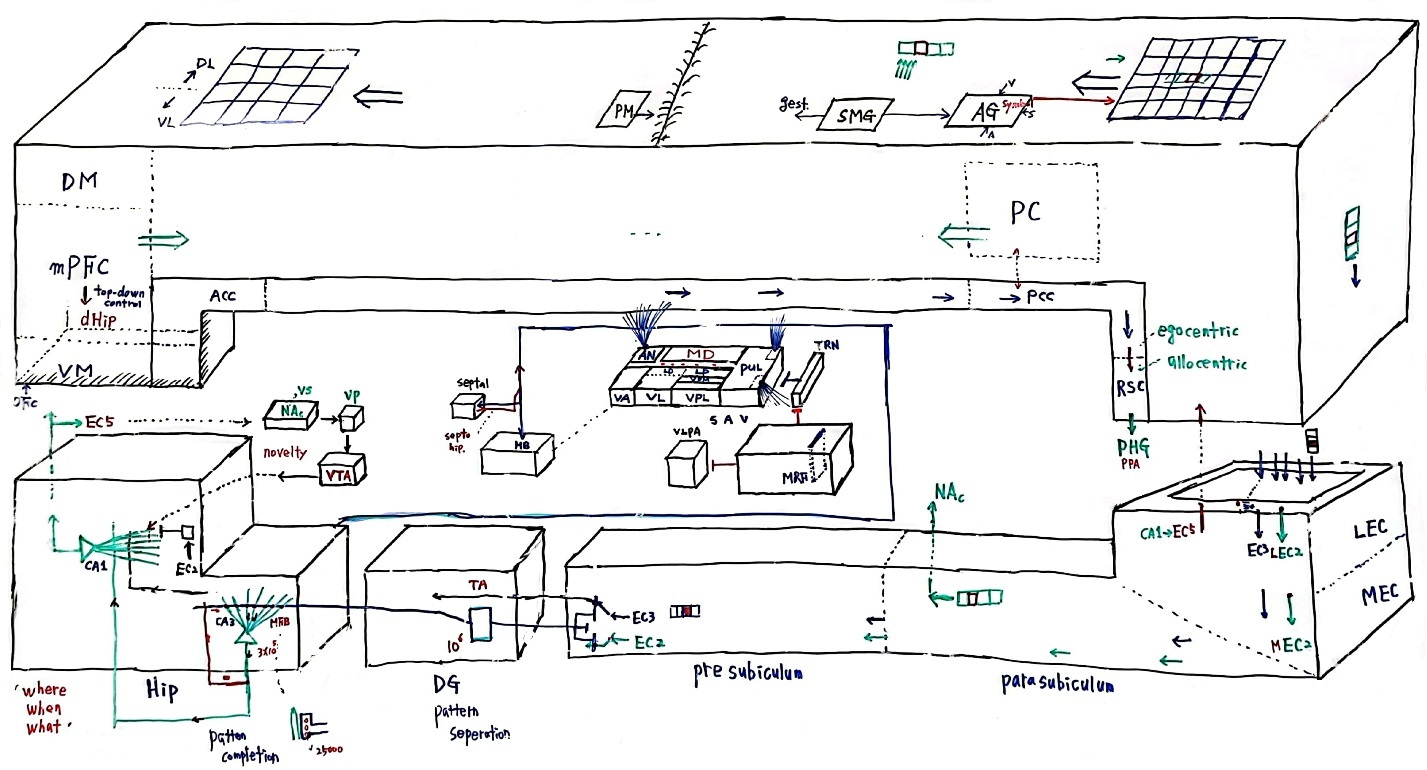 DL
VL
PM
gest.
SMG
V
AG
Symbol
S
A
DM
PC
mPFC
top-down
control
dHip
VM
OFC
ACC
PCC
egocentric
allocentric
RSC
PHG
PPA
AN
MD
LD
LP
VPM
PUL
TRN
VA
VL
VPL
S A V
septal
septo
hip.
MB
VLPA
MRF
EC5
VS
NAc
VP
novelty
VTA
CA1
EC2
CA3
MRB
3x10⁵
Hip
'where
when
what'
pattern
completion
25000
TA
10⁶
DG
pattern
seperation
EC3
EC2
pre subiculum
NAc
parasubiculum
CA1→EC5
EC3
LEC2
LEC
MEC
MEC2